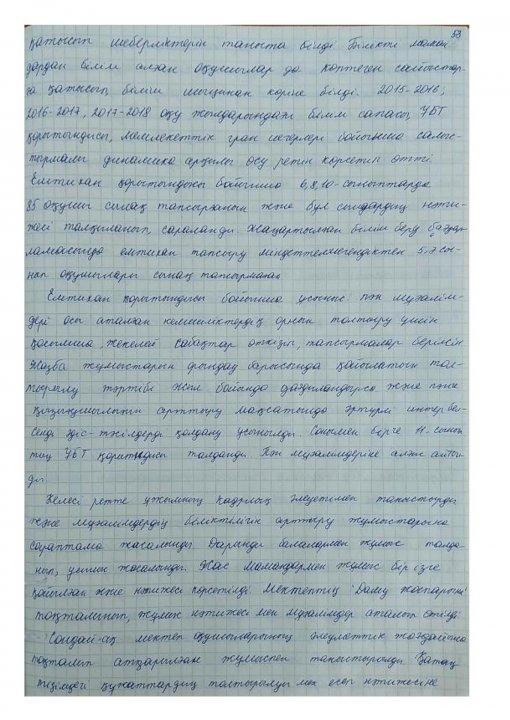 53
қатысып шеберліктерін таныта білді Білікті маман
дардан білім алған оқушылар да көптеген сайыстар-
ға қатысып, білім шыңынан көріне білді. 2015-2016,
2016-2017, 2017-2018 оқу жылдарындағы білім сапасы, ҰБТ
қорытындысы, мемлекеттік гран иегерлері бойынша салыс-
тырмалы динамика арқылы өсу ретін көрсетіп өтті.
Емтихан қорытындысы бойынша 6,8,10-сыныптарда
85 оқушы сынақ тапсырғанын және бұл сындардың нәти-
жесі талқыланып, сараланды. Жаңартылған білім беру бағдар
ламасында емтихан тапсыру міндеттелмегендіктен 5,7 сы-
нып оқушылары сынақ тапсырмаған
Емтихан қорытындысы бойынша ұсыныс: пән мұғалім-
дері осы аталған кемшіліктердің орнын толтыру үшін
қосымша, жекелей сабақтар өткізіп, тапсырмалар берілсін.
Жазба жұмыстарын орындау барысында қойылатын тал-
тәртібі жыл бойында дағдыландырса және пәнге
қызығушылығын арттыру мақсатында әртүрлі интербел-
сенді әдіс-тәсілдерді қолдану ұсынылды. Сонымен бірге 11-сынып
тың ҰБТ қорытындысы талданды. Пән мұғалімдеріне алғыс айтыл
ды.
Келесі ретте ұжымның кадрлық әлеуетімен таныстырды
және мұғалімдердің біліктілігін арттыру жұмыстарына
сараптама жасалынды. Дарынды балалармен жұмыс талда-
нып, ұсыныс жасалынды. Жас мамандармен жұмыс бір ізге
қойылған және нәтижесі көрсетілді. Мектептің "Даму жоспарына"
тоқталынып, жұмыс нәтижесі мен мұғалімдер аталып өтілді.
Сондай-ақ мектеп оқушыларының әлеуметтік жағдайына
тоқталып атқарылған жұмыспен таныстырылды. Қатаң
тізімдегі құжаттардың толтырылуы мен есеп нәтижесіне